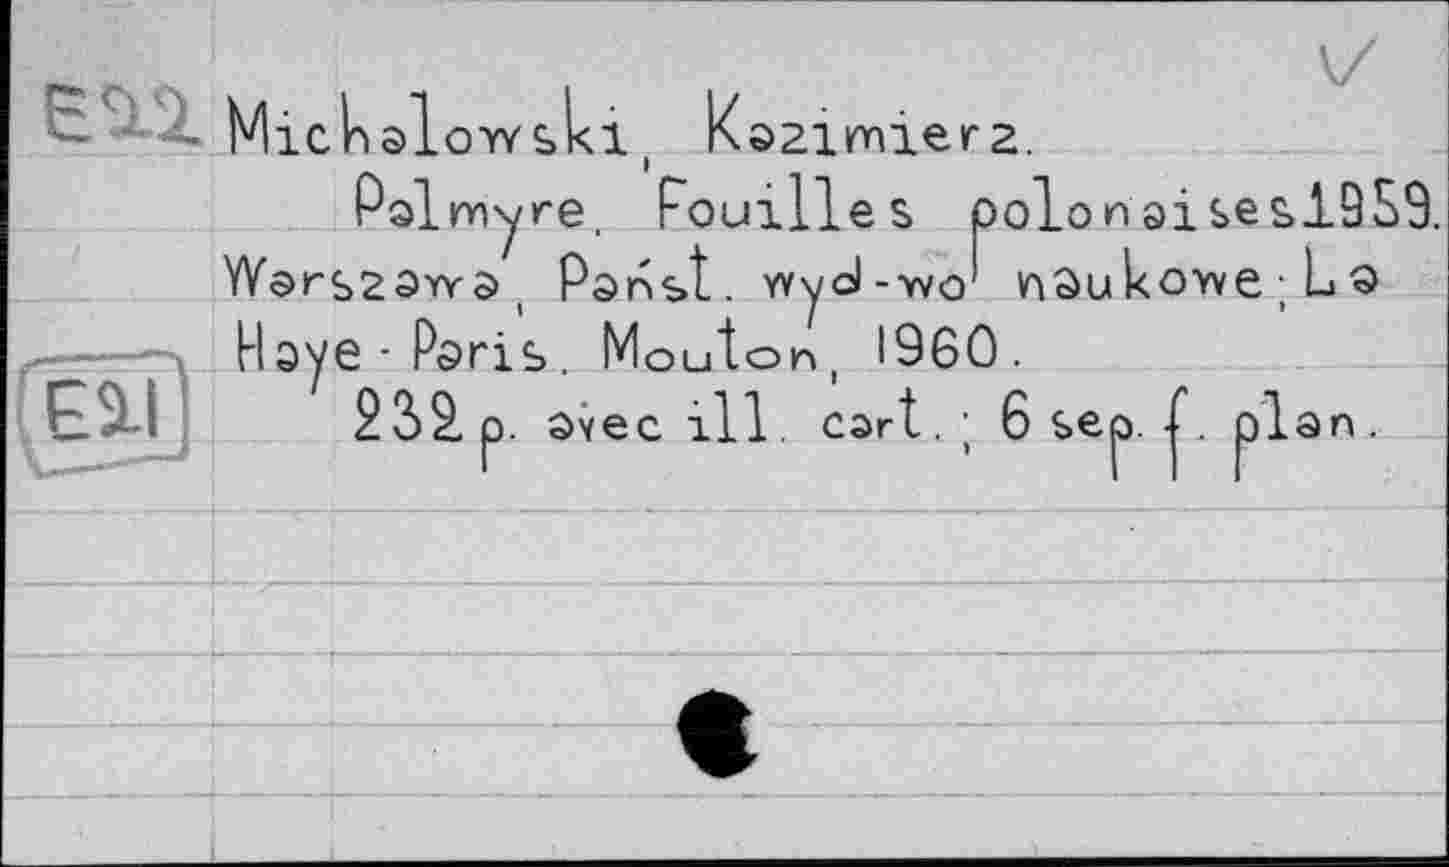 E22 Michalowski, Kazimierz.
Palmyre. Fouilles polonaises 1959.
Warszawa, Państ. wyd-wo naukowe; La
Haye - Paris. Mouton, 1960.
E21 232 p. avec ill. cart.; 6 sep. f. plan.